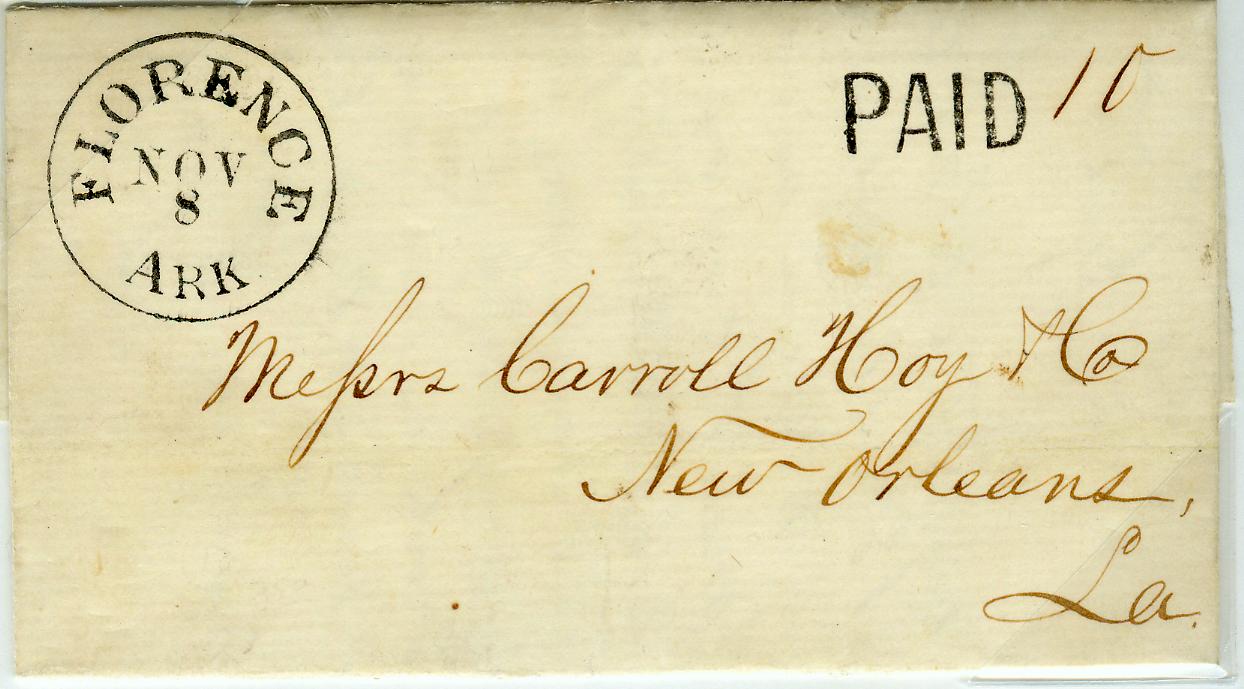 FLORENCE
NOV
8
ARK
PAID 10
Meſsrs Carroll Hoy & Co
New Orleans,
La.